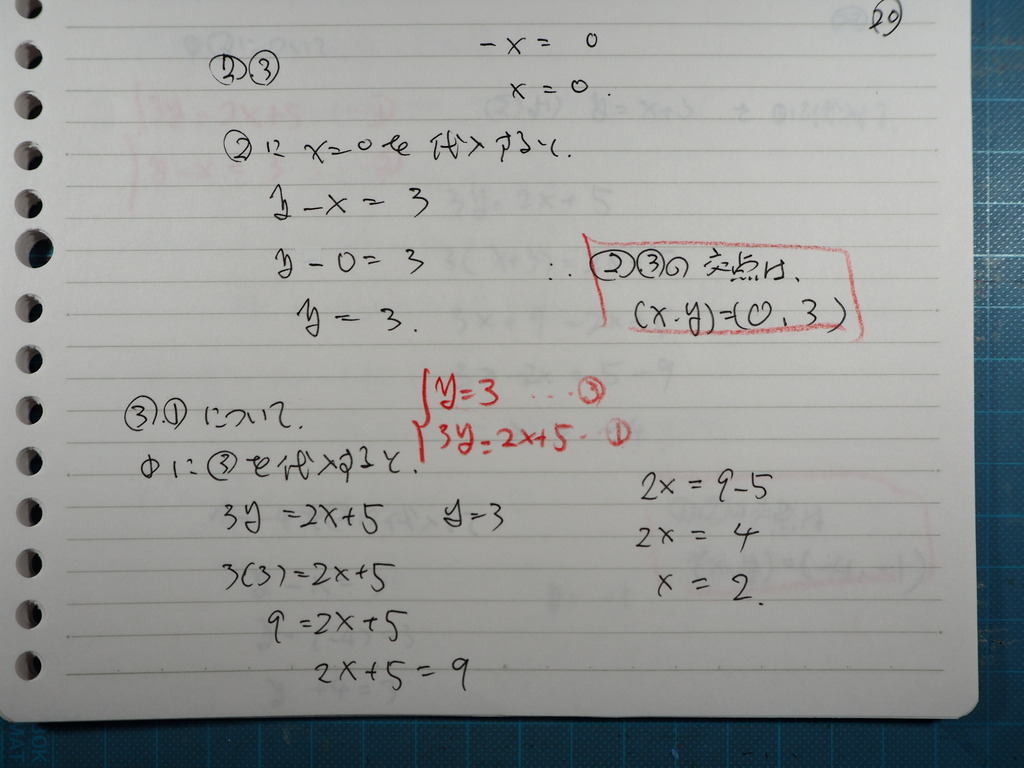 29
-x = 0
②③
x = 0.
②に x=0を 代入すると.
y - x = 3
y - 0 = 3
y = 3.
∴ ②③の 交点は、
(x.y)=(0, 3)
③.①について.
y=3 ... ③
3y=2x+5 - ①
①に③を代入すると.
3y =2x+5 y=3
3(3)=2x+5
9 =2x+5
2x+5 = 9
2x = 9-5
2x = 4
x = 2.